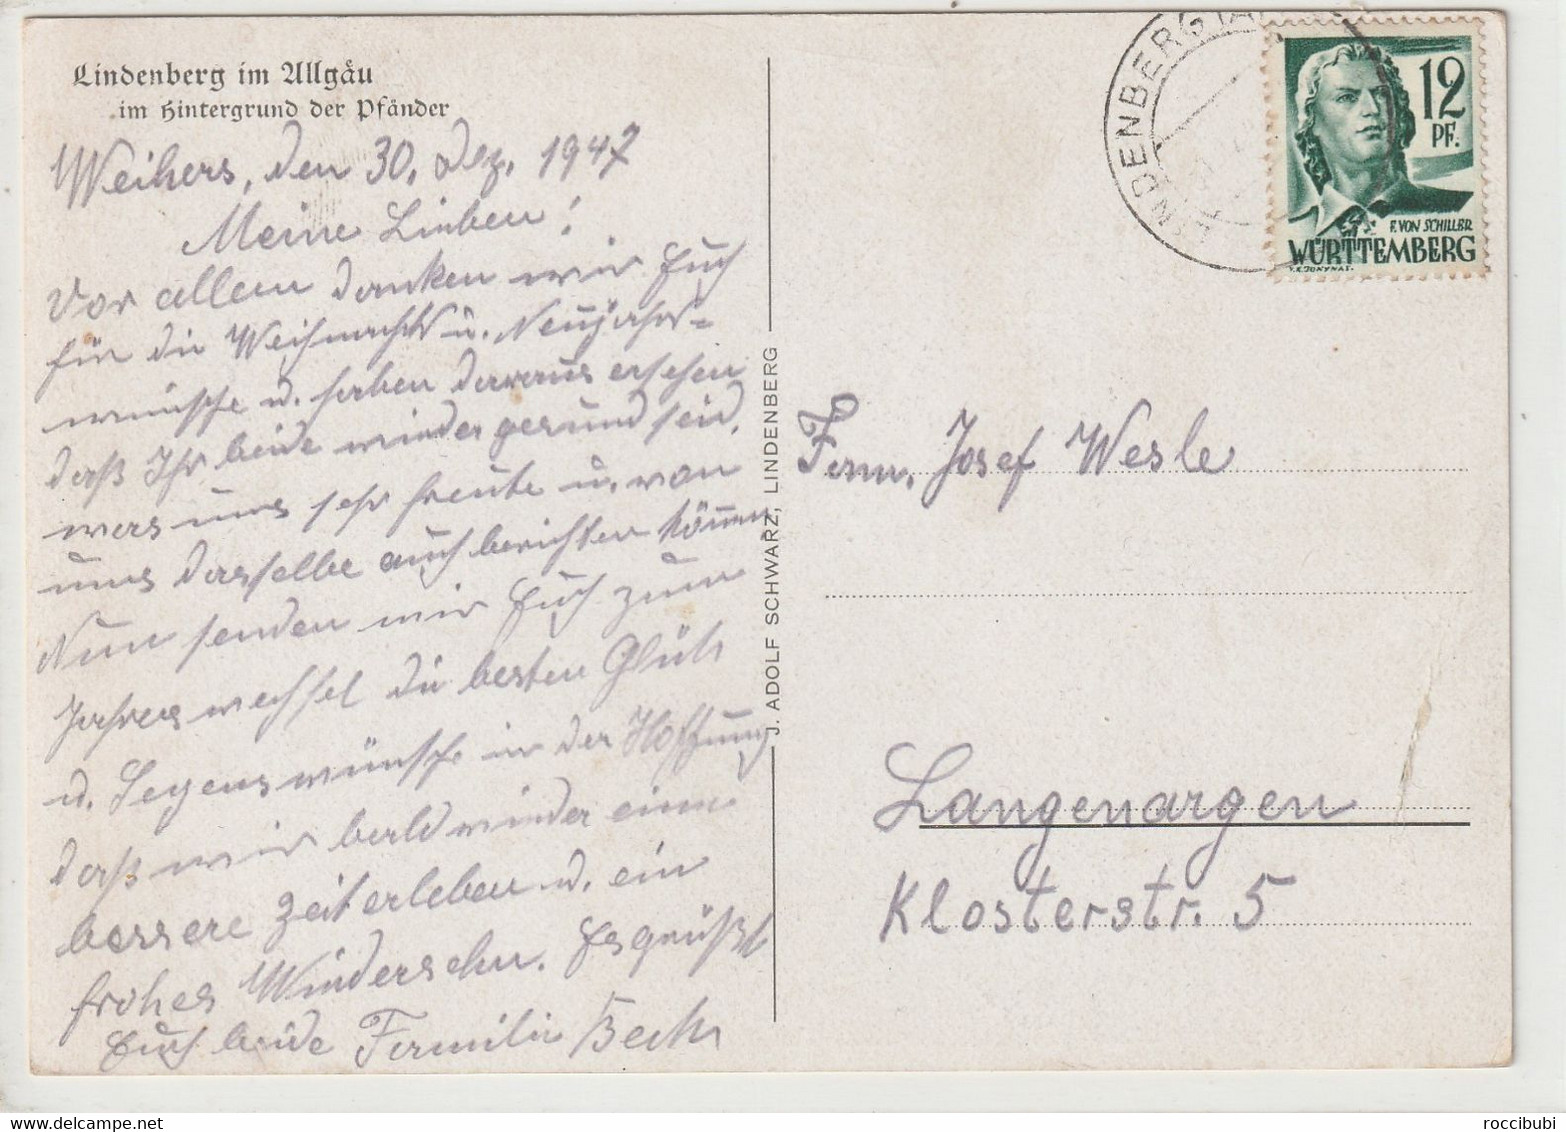 Lindenberg im Allgäu
im Hintergrund der Pfänder
Weihers, den 30. Dez. 1947
Meine Lieben!
Vor allem danken wir Euch
für die Weihnachts u. Neujahrs-
wünsche u. haben daraus ersehen
daß Ihr beide wieder gesund seid,
was uns sehr freute u. von
uns dasselbe auch berichten können
Nun senden wir Euch zum
Jahreswechsel die besten Glück
u. Segenswünsche in der Hoffnung
daß wir bald wieder eine
bessere Zeit erleben u. ein
frohes Wiedersehn. Es grüßt
Euch beide Familie Beck
J. ADOLF SCHWARZ, LINDENBERG
LINDENBERG (A
12
PF.
F. VON SCHILLER
WÜRTTEMBERG
V.K.JONYNAS.
Fam. Josef Wesle
Langenargen
Klosterstr. 5
roccibubi